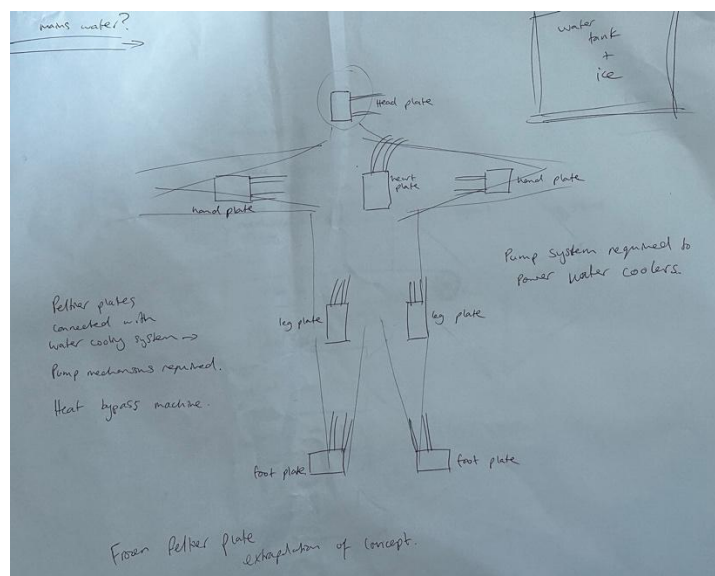 mains water?
water
tank
+
ice
Head plate
heart
plate
hand plate
hand plate
Pump system required to
power water coolers.
Peltier plates
connected with
water cooling system →
Pump mechanisms required.
Heat bypass machine.
leg plate
leg plate
foot plate
foot plate
Frozen Peltier plate
extrapolation of concept.